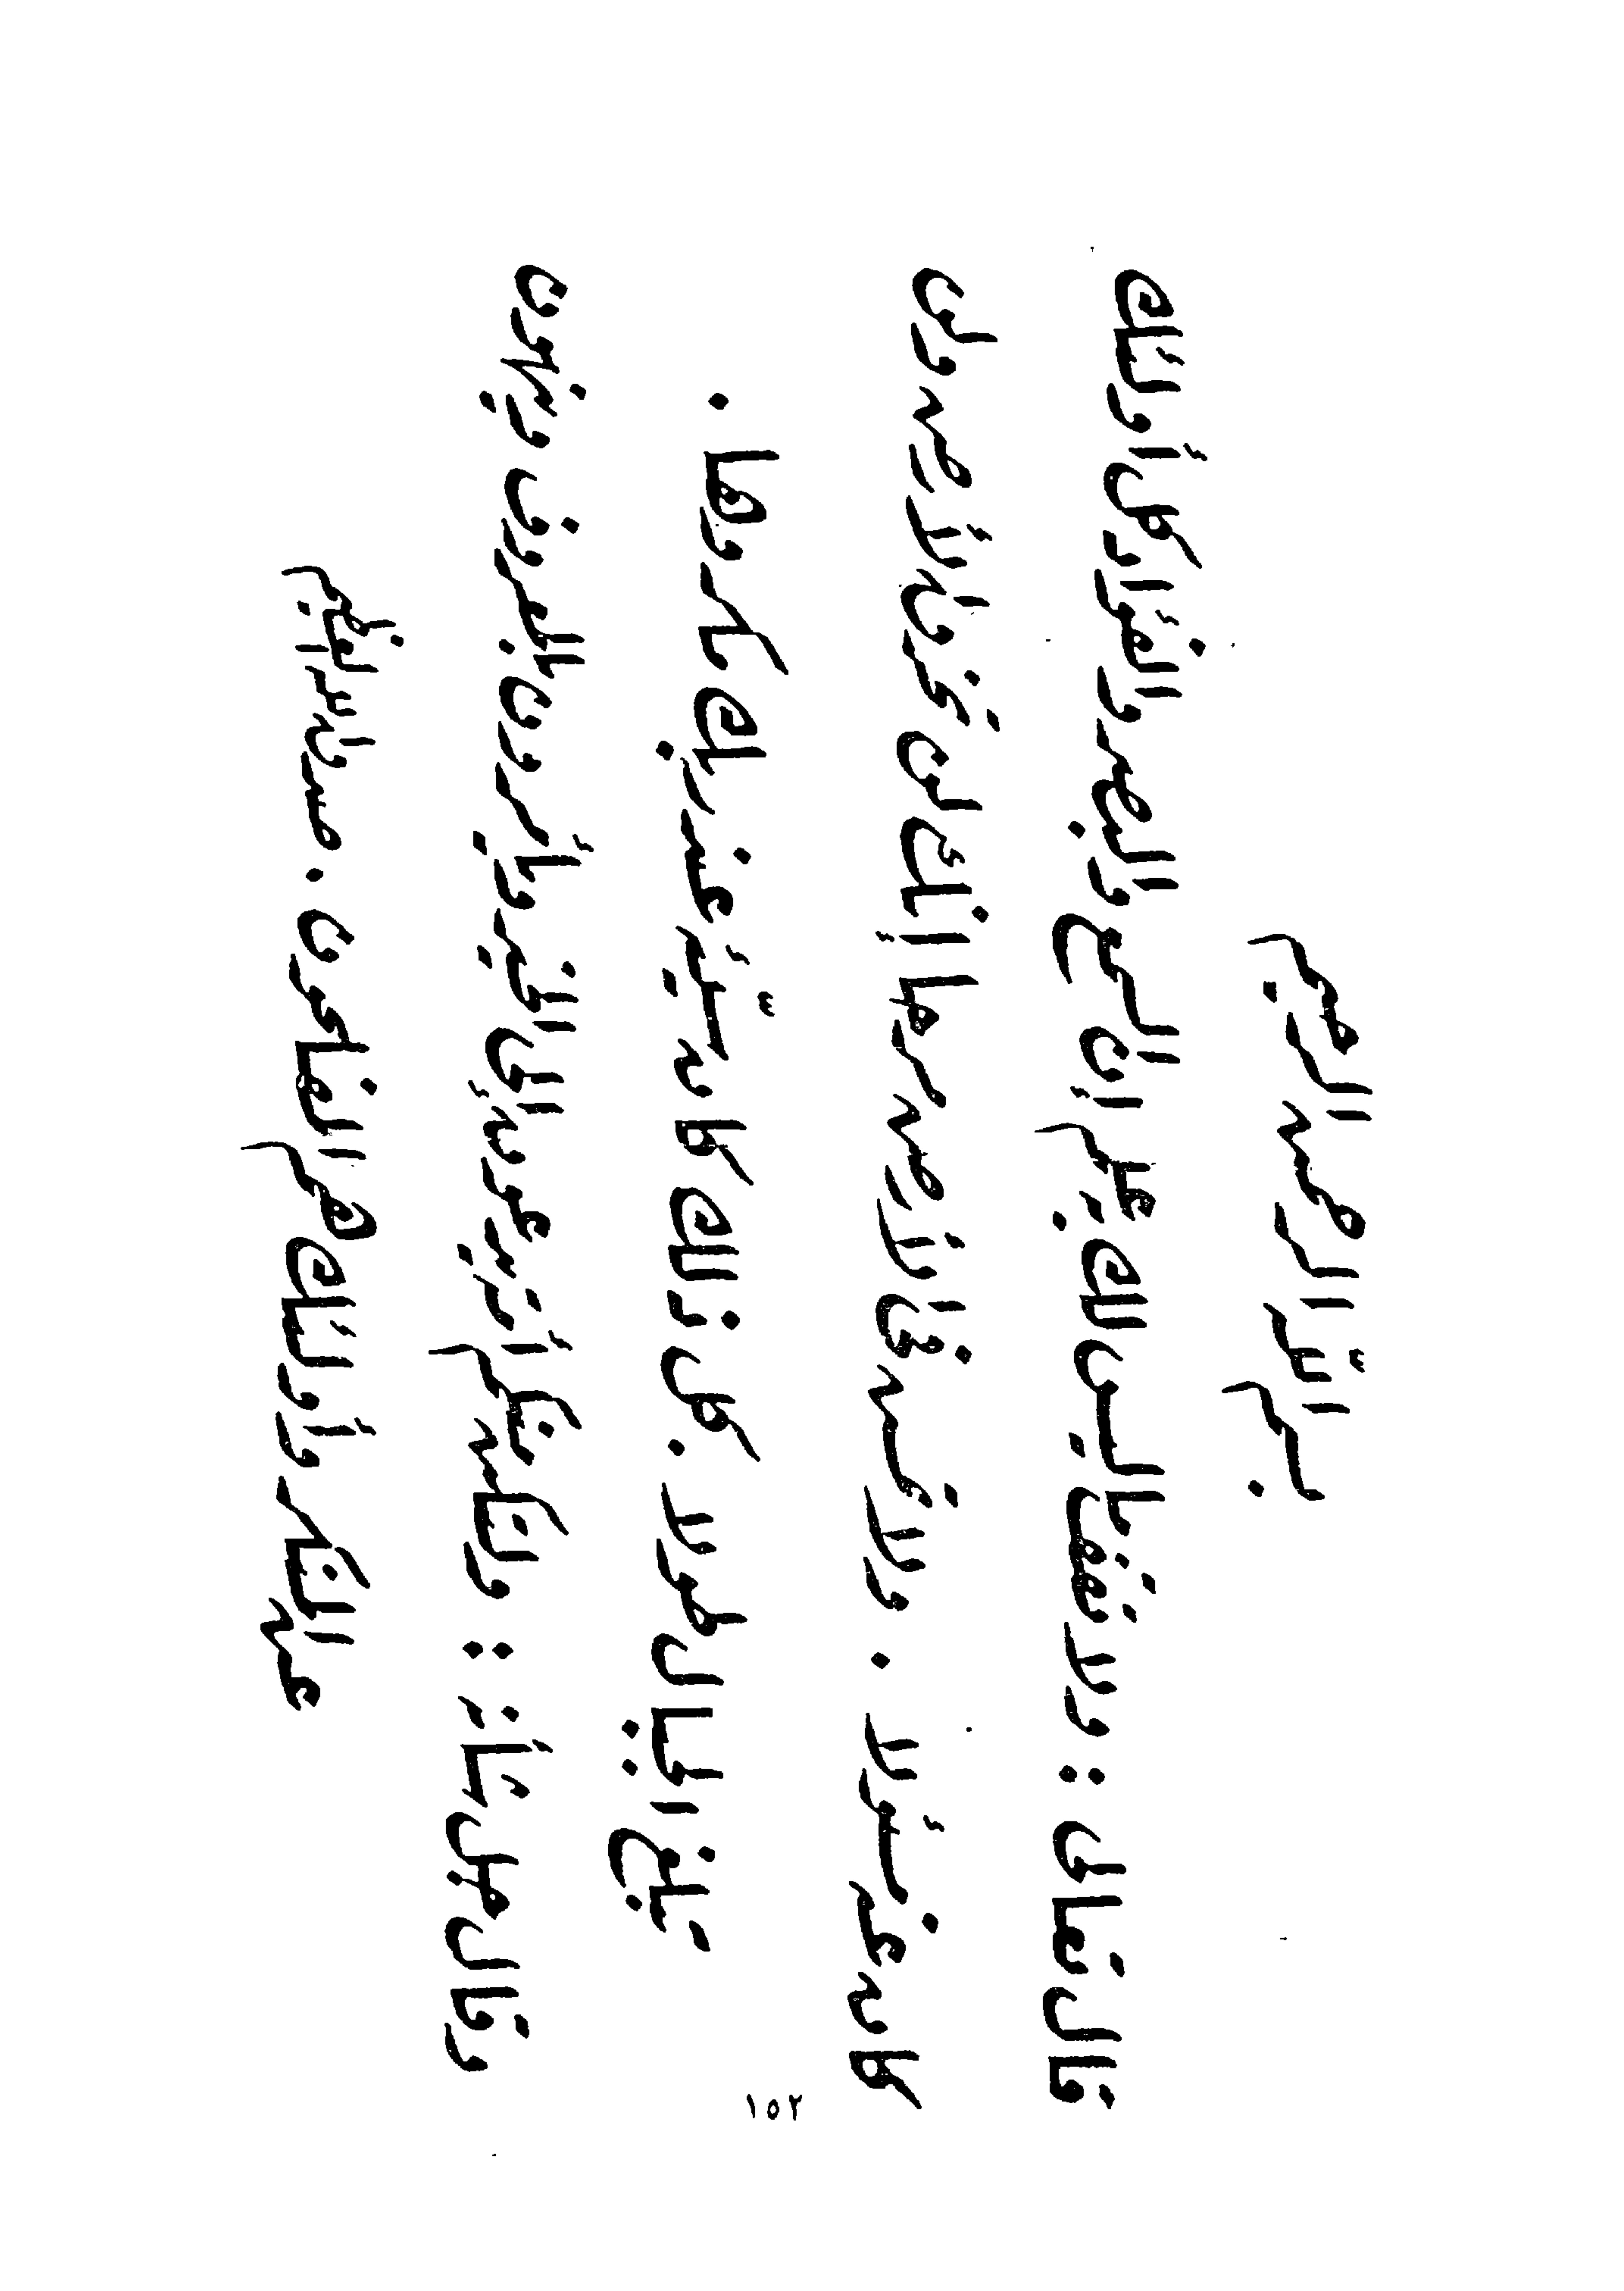 بسم الله الرحمن الرحيم
قال تعالى : ولا تقف ما ليس لك به علم إن السمع والبصر والفؤاد كل أولئك
كان عنه مسئولا . ولا تمش في الأرض مرحا إنك لن تخرق الأرض ولن
تبلغ الجبال طولا . كل ذلك كان سيّئه عند ربك مكروها .
وقال جل شأنه : ولتكن منكم أمة يدعون إلى الخير ويأمرون بالمعروف وينهون
عن المنكر وأولئك هم المفلحون . صدق الله العظيم
١٥٢